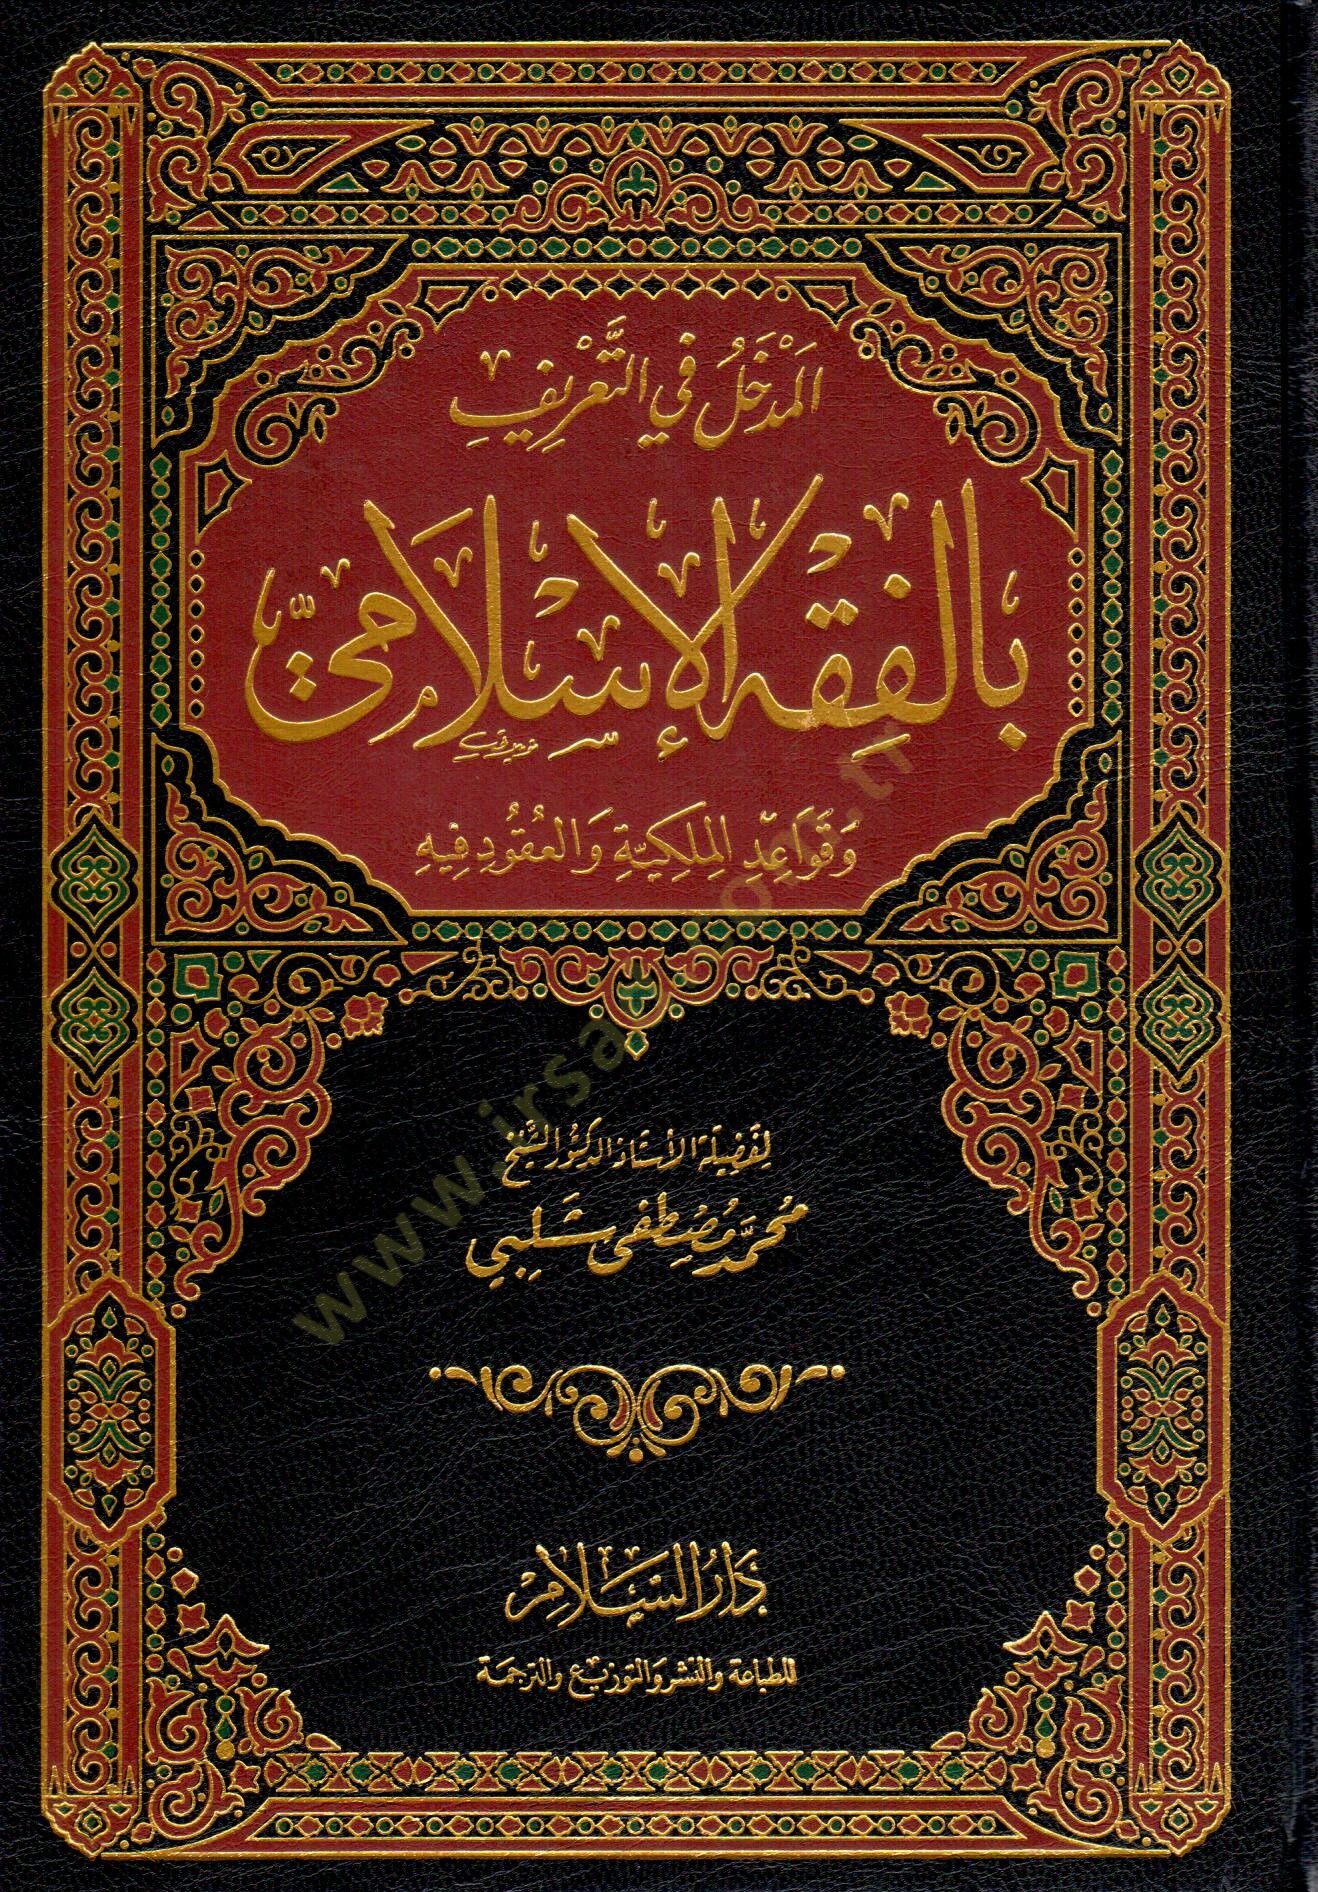 المَدْخَلُ فِي التَّعْرِيفِ
بِالفِقْهِ الإِسْلَامِيِّ
وَقَوَاعِدِ المِلكِيَّةِ وَالعُقُودِ فِيهِ
لِفَضِيلَةِ الأُسْتَاذِ الدكتُورِ الشَّيْخِ
مُحَمَّد مُصْطفى شَلِبِي
دَارُ السَّلَامِ
للطباعة والنشر والتوزيع والترجمة